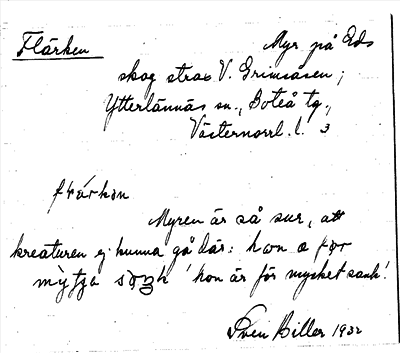 Flärken
Myr på Eds
skog strax V. Grimsåsen;
Ytterlännäs sn., Boteå tg.,
Västernorrl. l. 3
Myren är så sur, att
kreaturen ej kunna gå där: hon æ før
'hon är för mycket sank'.
Sven Biller 1932